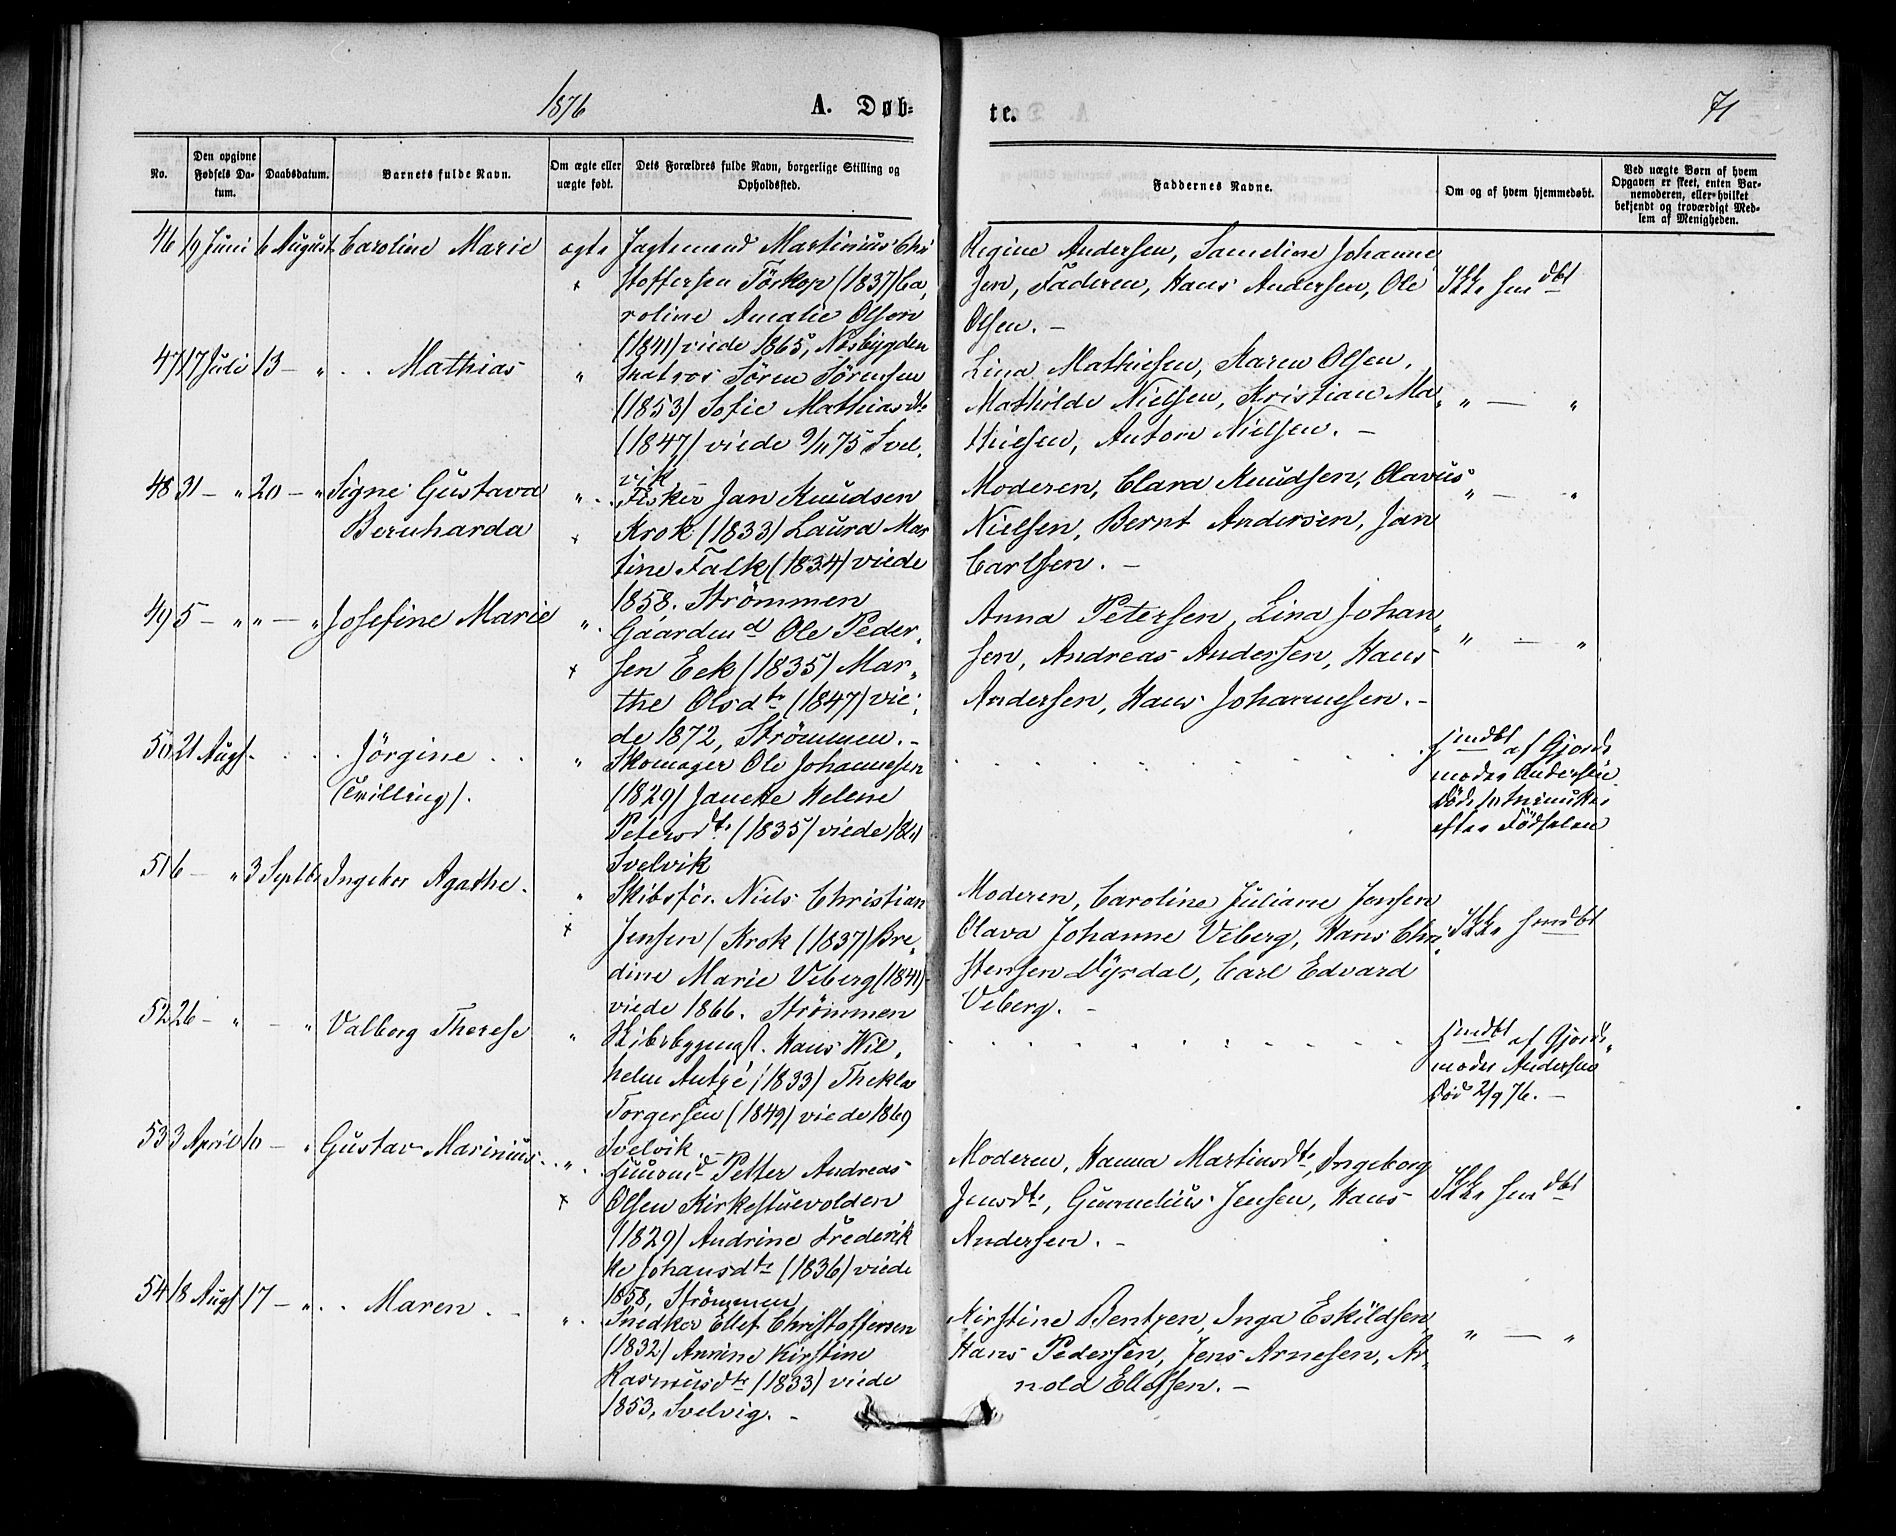 1876 A. Døb-
te. 71
No.
Den opgivne
Fødsels Da-
tum.
Daabsdatum.
Barnets fulde Navn.
Om ægte eller
uægte født.
Dets Forældres fulde Navn, borgerlige Stilling og
Opholdssted.
Faddernes Navne.
Om og af hvem hjemmedøbt.
Ved uægte Børn af hvem
Opgaven er skeet, enten Bar-
nemoderen, eller hvilket
bekjendt og troværdigt Med-
lem af Menigheden.
46 19 Juni 6 August Caroline Marie ægte
Jagtemand Martinius Chri
stoffersen Törkop (1837) Ca,
roline Amalie Olsen
(1841) viede 1865, Næsbygden
Regine Andersen, Sameline Johanne
sen, Faderen, Hans Andersen, Ole
Olsen. -
Ikke hmdbt
47 17 Juli 13 - " Mathias "
Matros Sören Sörensen
(1853) Sofie Mathiasdtr
(1847) viede 9/11 75 Svel,
vik
Lina Mathiesen, Karen Olsen,
Mathilde Nielsen, Kristian Ma
thiesen, Anton Nielsen. -
" - "
48 31 - " 20 - " Signe Gustava
Bernharda "
Fisker Jan Knudsen
Krok (1833) Laura Mar
tine Falk (1834) viede
1858. Strömmen
Moderen, Clara Knudsen, Olavus
Nielsen, Bernt Andersen, Jan
Carlsen. -
" - "
49 5 - " " - " Josefine Marie "
Gaardmd Ole Peder,
sen Eek (1835) Mar,
the Olsdtr (1847) vie,
de 1872, Strömmen. -
Anna Petersen, Lina Johan,
sen, Andreas Andersen, Hans
Andersen, Hans Johannesen. -
" - "
50 21 Augs. Jörgine
(Tvilling). "
Skomager Ole Johannesen
(1829) Janette Helene
Petersdtr (1835) viede
Svelvik
hmdbt af Gjords
moder Andersen
Död 10 Minutter
efter Födselen
51 6 - " 3 Septbr Ingebor Agathe. "
Skibsför. Niels Christian
Jensen Krok (1837) Bre,
dine Marie Veberg (1841)
viede 1866. Strömmen
Moderen, Caroline Juliane Jensen
Olava Johanne Veberg, Hans Chri,
stensen Dyrdal, Carl Edvard
Veberg. -
Ikke hmdbt
52 26 - " - " Valborg Therese "
Skibsbyggmst. Hans Wil,
helm Antzé (1833) Thekla
Torgersen (1849) viede 1869
Svelvik. -
hmdbt af Gjords,
moder Andersen
Död 2/9 76. -
53 3 April 10 - " Gustav Marinius "
Huusmd Petter Andreas
Olsen Kirkestuevolden
(1829) Andrine Frederik
ke Johansdtr (1836) viede
1858, Strömmen
Moderen, Hanna Martinsdtr, Ingeborg
Jensdtr, Gunnelius Jensen, Hans
Andersen. -
Ikke hmdbt
54 18 Augs 17 - " Maren. "
Snedker Ellef Christoffersen
(1832) Annine Kirstine
Rasmusdtr (1833) viede
1853, Svelvig. -
Kirstine Bentzen, Inga Eskildsen,
Hans Pedersen, Jens Arnesen, Ar,
nold Ellefsen. -
" - "